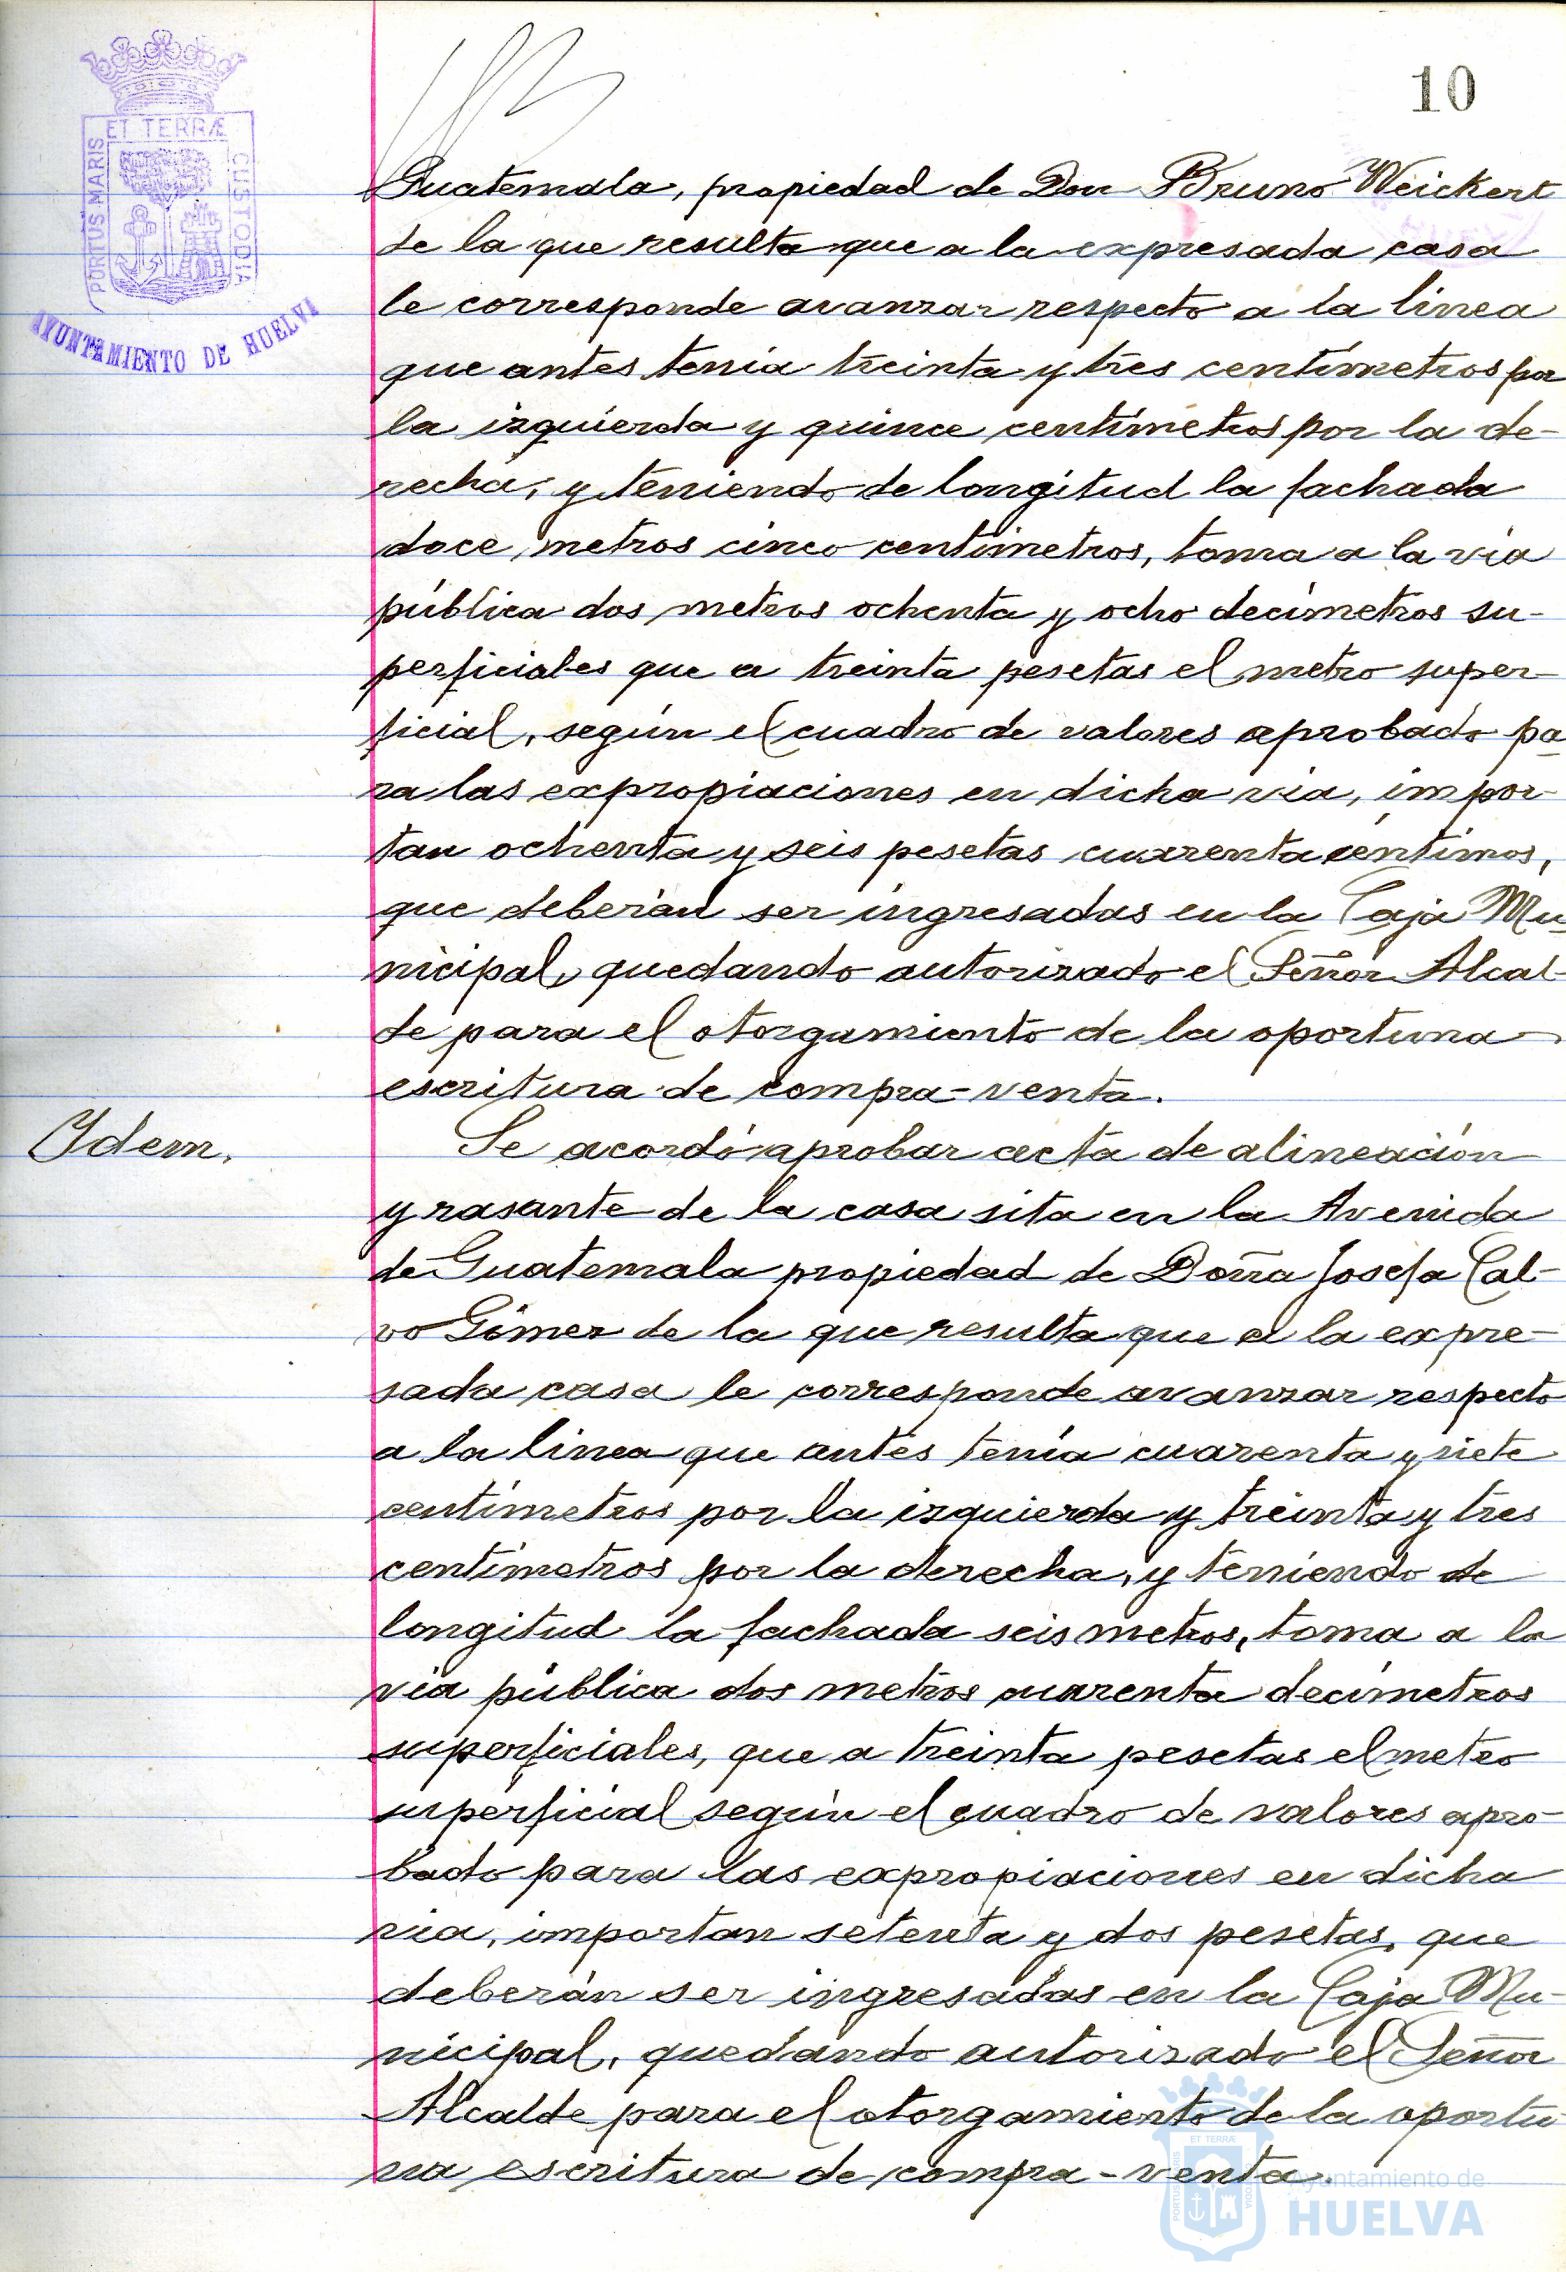 10
ET TERRÆ
PORTUS MARIS
CUSTODIA
AYUNTAMIENTO DE HUELVA
Guatemala, propiedad de Don Bruno Weickert
de la que resulta que a la expresada casa
le corresponde avanzar respecto a la línea
que antes tenía treinta y tres centímetros por
la izquierda y quince centímetros por la de-
recha, y teniendo de longitud la fachada
doce metros cinco centímetros, toma a la vía
pública dos metros ochenta y ocho decímetros su-
perficiales que a treinta pesetas el metro super-
ficial, según el cuadro de valores aprobado pa
ra las expropiaciones en dicha vía, impor-
tan ochenta y seis pesetas cuarenta céntimos,
que deberán ser ingresadas en la Caja Mu-
nicipal, quedando autorizado el Señor Alcal-
de para el otorgamiento de la oportuna
escritura de compra-venta.
Idem.
Se acordó aprobar acta de alineación
y rasante de la casa sita en la Avenida
de Guatemala propiedad de Doña Josefa Cal-
vo Gómez de la que resulta que a la expre-
sada casa le corresponde avanzar respecto
a la línea que antes tenía cuarenta y siete
centímetros por la izquierda y treinta y tres
centímetros por la derecha, y teniendo de
longitud la fachada seis metros, toma a la
vía pública dos metros cuarenta decímetros
superficiales, que a treinta pesetas el metro
superficial según el cuadro de valores apro-
bado para las expropiaciones en dicha
vía, importan setenta y dos pesetas, que
deberán ser ingresadas en la Caja Mu-
nicipal, quedando autorizado el Señor
Alcalde para el otorgamiento de la oportu
na escritura de compra-venta.
Ayuntamiento de
HUELVA